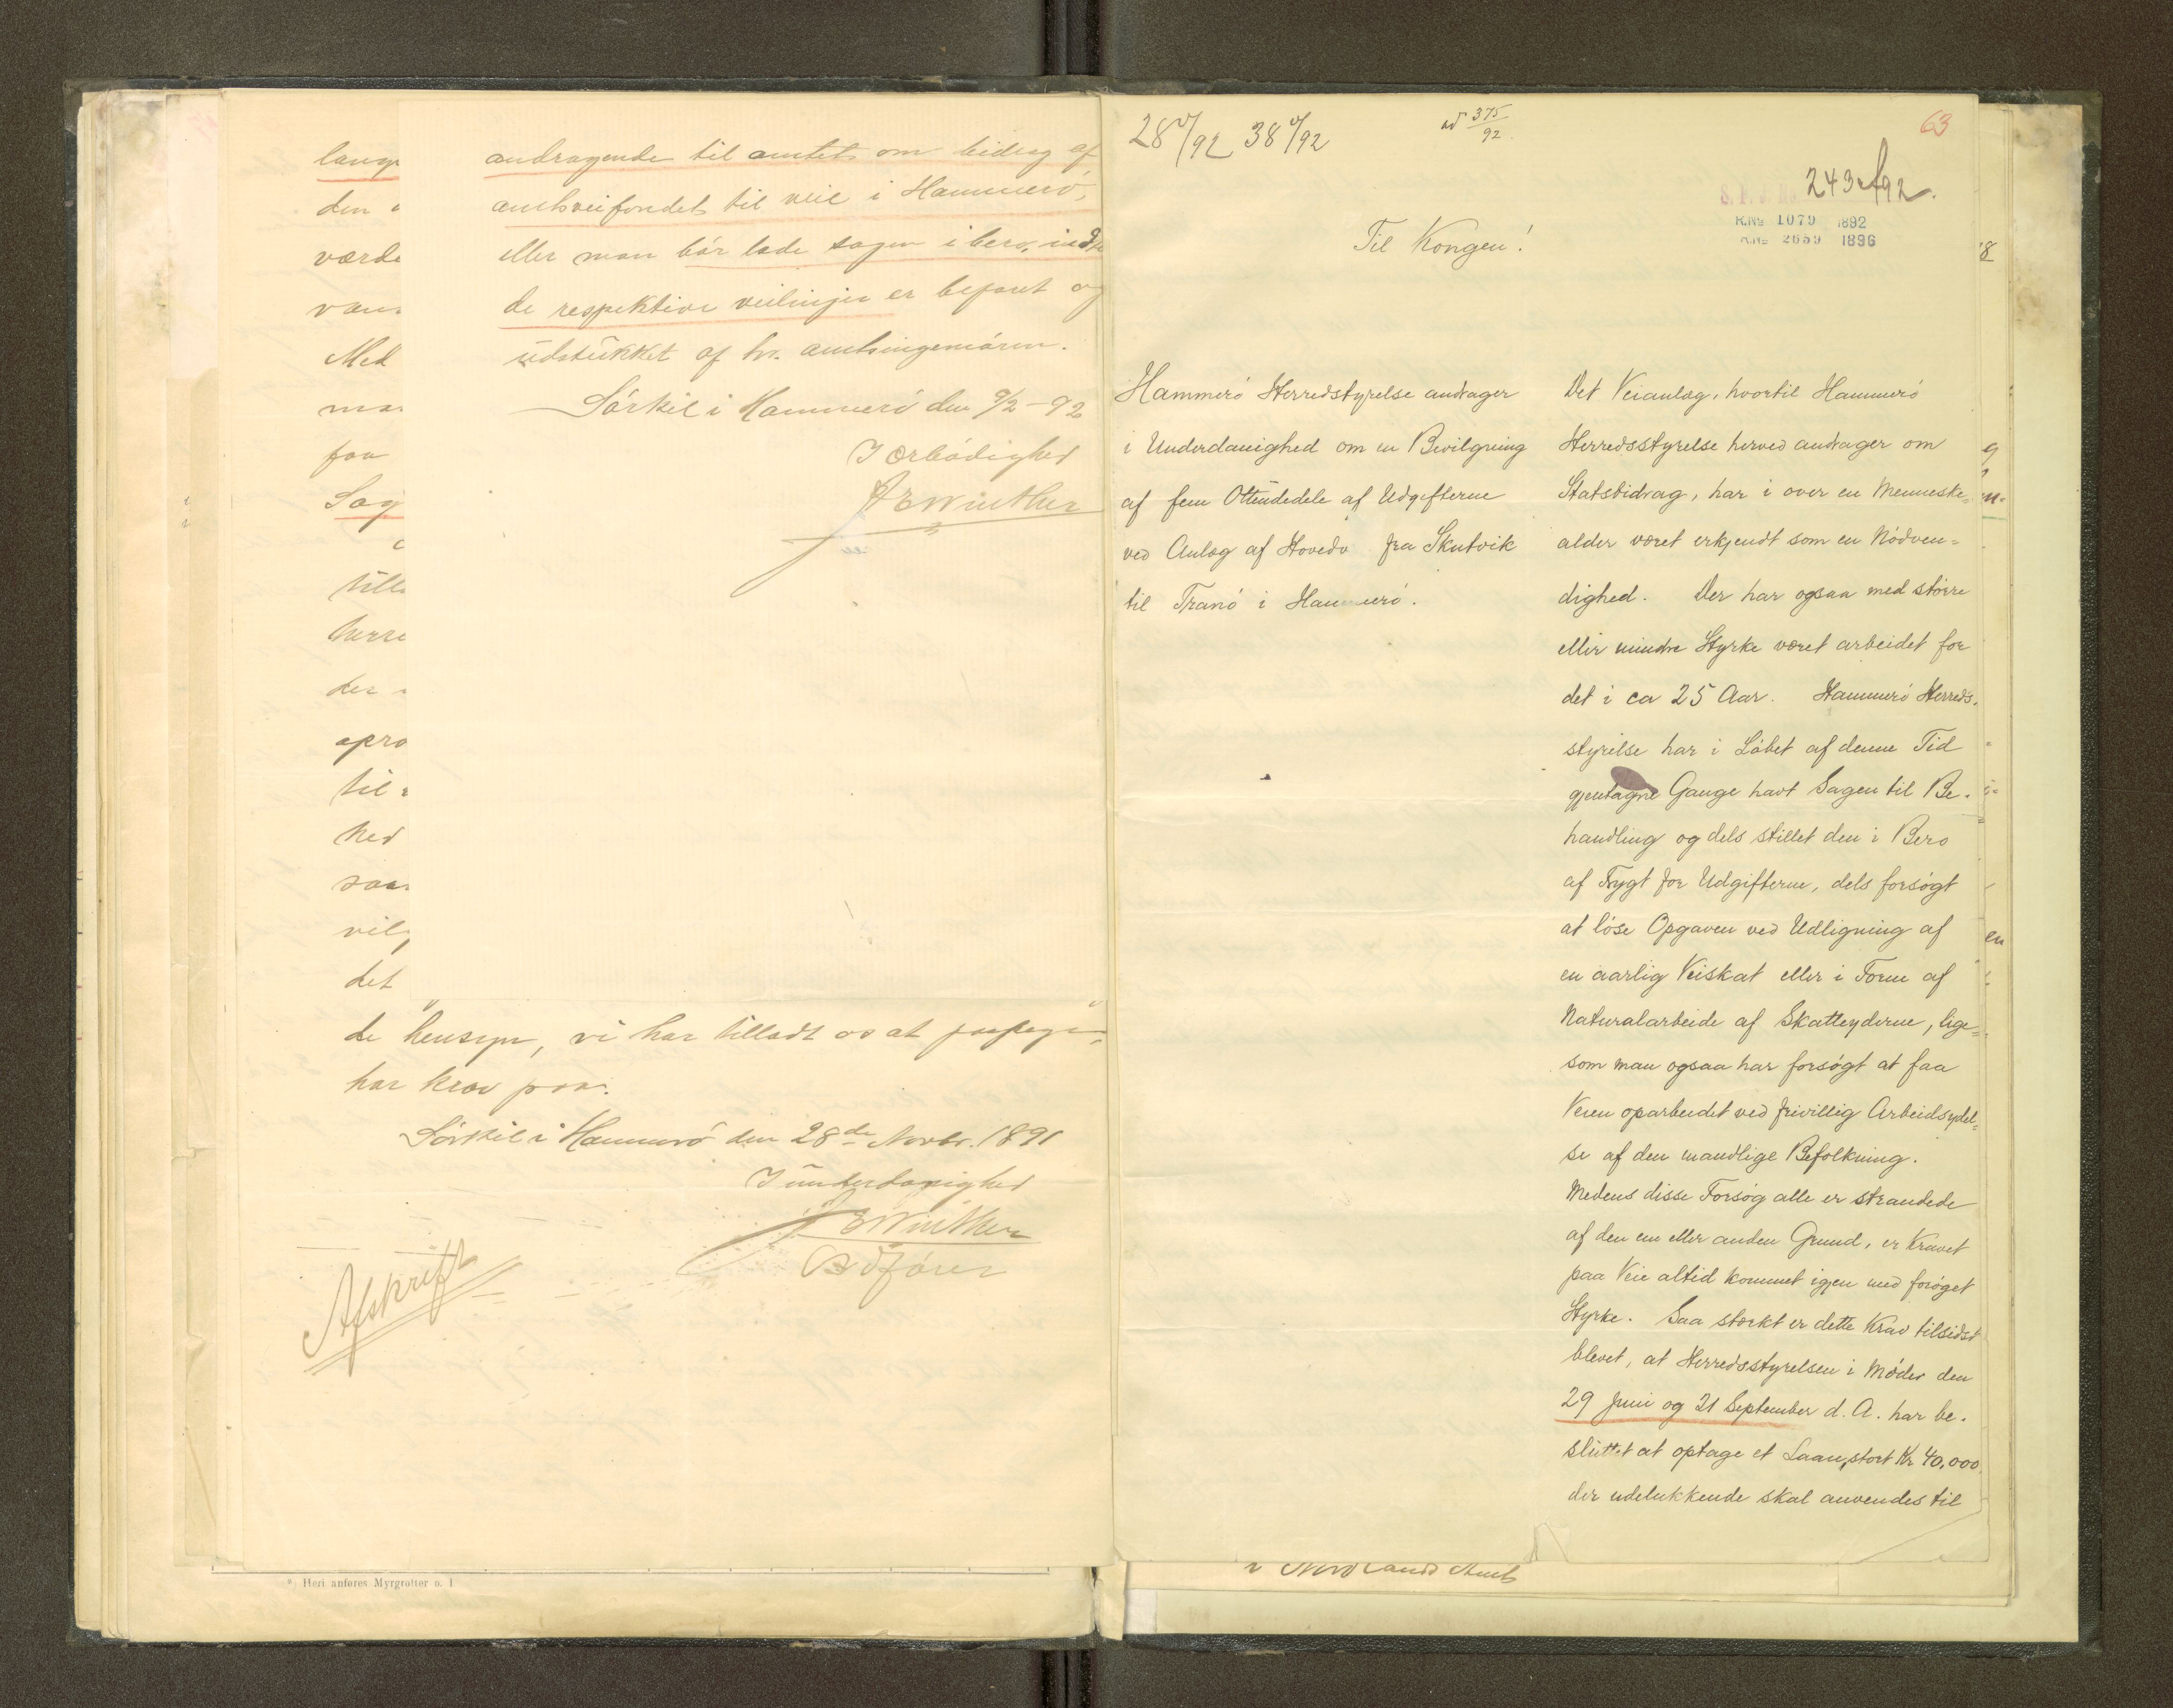 andragende til amtet om bidrag af
amtsveifondet til veie i Hammerø,
eller man bør lade sagen i bero, indtil
de respektive veilinjer er befaret og
udstukket af hr. amtsingeniøren.
Sørkil i Hammerø den 9/2 - 92
I ærbødighed
JEWinther
lang
den
værde
van
Med
ma
faa
Sag
till
herre
der
opro
til
hed
saa
vil
det
de "hensyn", vi har tilladt os at paapege,
har krav paa.
Sørkil i Hammerø den 28de Novbr. 1891
I underdanighed
JEWinther
Ordfører
Afskrift
*) Heri anføres Myrgrøfter o. l
28 V/92 38 V/92
ad 375/92
63
243 A/92.
R.No 1079 1892
R.No 2659 1896
Til Kongen!
Hammerø Herredstyrelse andrager
i Underdanighed om en Bevilgning
af fem Ottendedele af Udgifterne
ved Anlæg af Hovedv fra Skutvik
til Tranø i Hammerø.
Det Veianlæg, hvortil Hammerø
Herredsstyrelse herved andrager om
Statsbidrag, har i over en Menneske=
alder været erkjendt som en Nødven=
dighed. Der har ogsaa med større
eller mindre Styrke været arbeidet for
det i ca 25 Aar. Hammerø Herreds.
styrelse har i Løbet af denne Tid
gjentagne Gange havt Sagen til Be.
handling og dels stillet den i Bero
af Frygt for Udgifterne, dels forsøgt
at løse Opgaven ved Udligning af
en aarlig Veiskat eller i Form af
Naturalarbeide af Skatteyderne, lige=
som man ogsaa har forsøgt at faa
Veien oparbeidet ved frivillig Arbeidsydel=
se af den mandlige Befolkning.
Medens disse Forsøg alle er strandede
af den en eller anden Grund, er Kravet
paa Veie altid kommet igjen med forøget
Styrke. Saa stærkt er dette Krav tilsidst
blevet, at Herredsstyrelsen i Møder den
29 Juni og 21 September d. A. har be.
sluttet at optage et Laan, stort Kr 40,000,
der udelukkende skal anvendes til
i Nordlands Amt